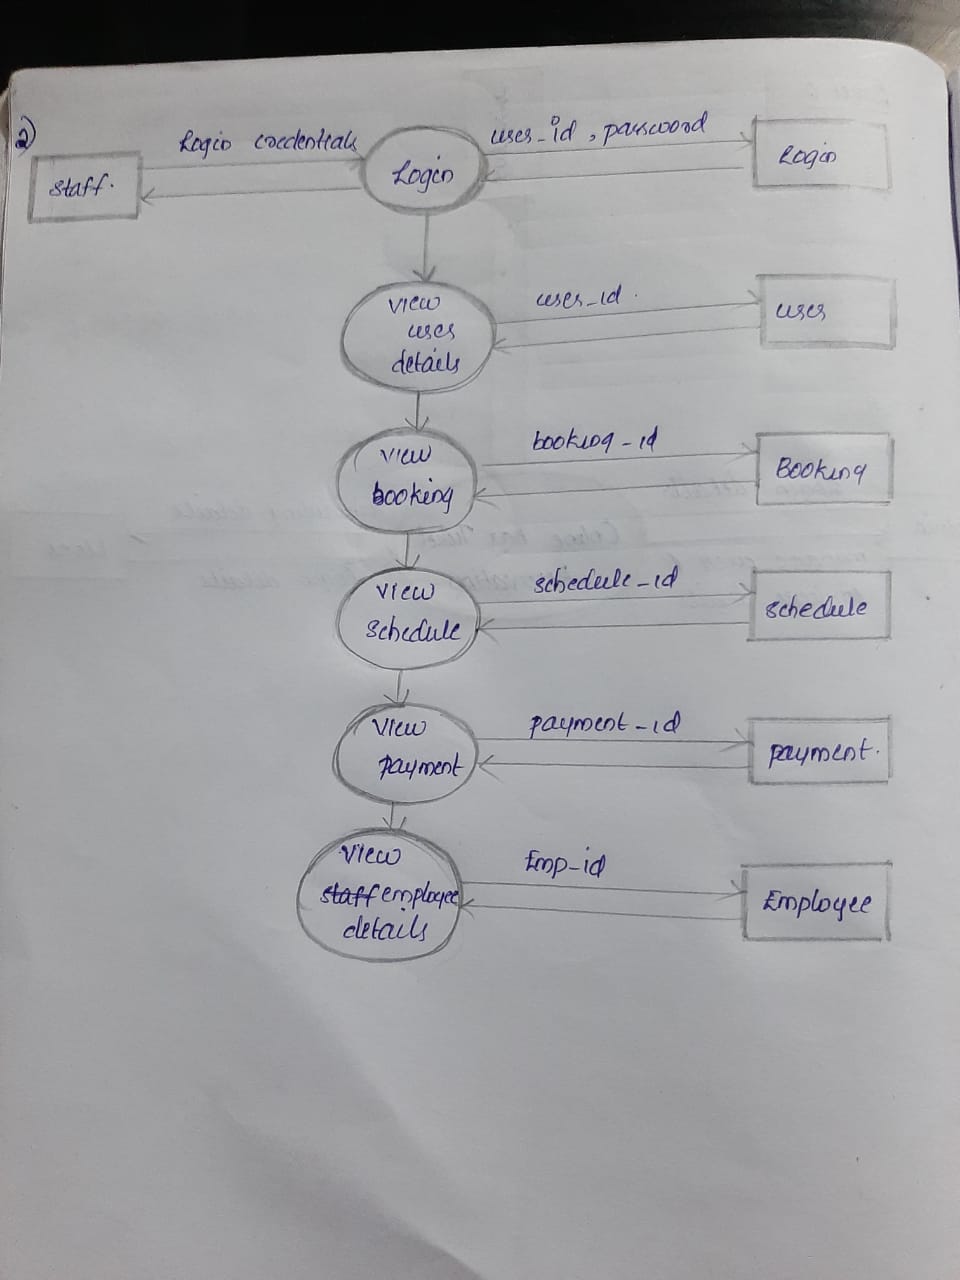 2)
Login credentials
user_id, password
staff.
Login
Login
view
user
details
user_id
user
view
booking
booking_id
Booking
view
schedule
schedule_id
schedule
view
payment
payment_id
payment.
view
staff employee
details
Emp_id
Employee